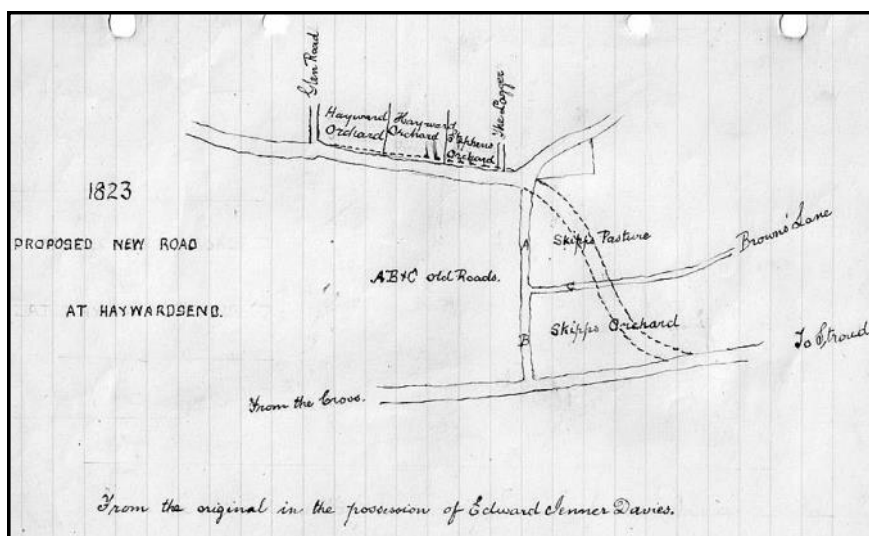 Glen Road
Hayward
Orchard
Hayward
Orchard
Stephens
Orchard
The Lagger
1823
PROPOSED NEW ROAD
AT HAYWARDSEND.
AB&C old Roads.
A
Skipps Pasture
Browns Lane
C
B
Skipps Orchard
To Stroud
From the Cross.
From the original in the possession of Edward Jenner Davies.